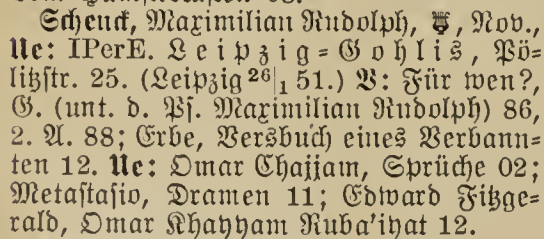 Schenck, Maximilian Rudolph, Nov.,
Ue: IPerE. Leipzig=Gohlis, Pö=
litzstr. 25. (Leipzig 26|1 51.) V: Für wen?,
G. (unt. d. Ps. Maximilian Rudolph) 86,
2. A. 88; Erbe, Versbuch eines Verbann=
ten 12. Ue: Omar Chajjam, Sprüche 02;
Metastasio, Dramen 11; Edward Fitzge=
rald, Omar Khayyam Ruba'iyat 12.